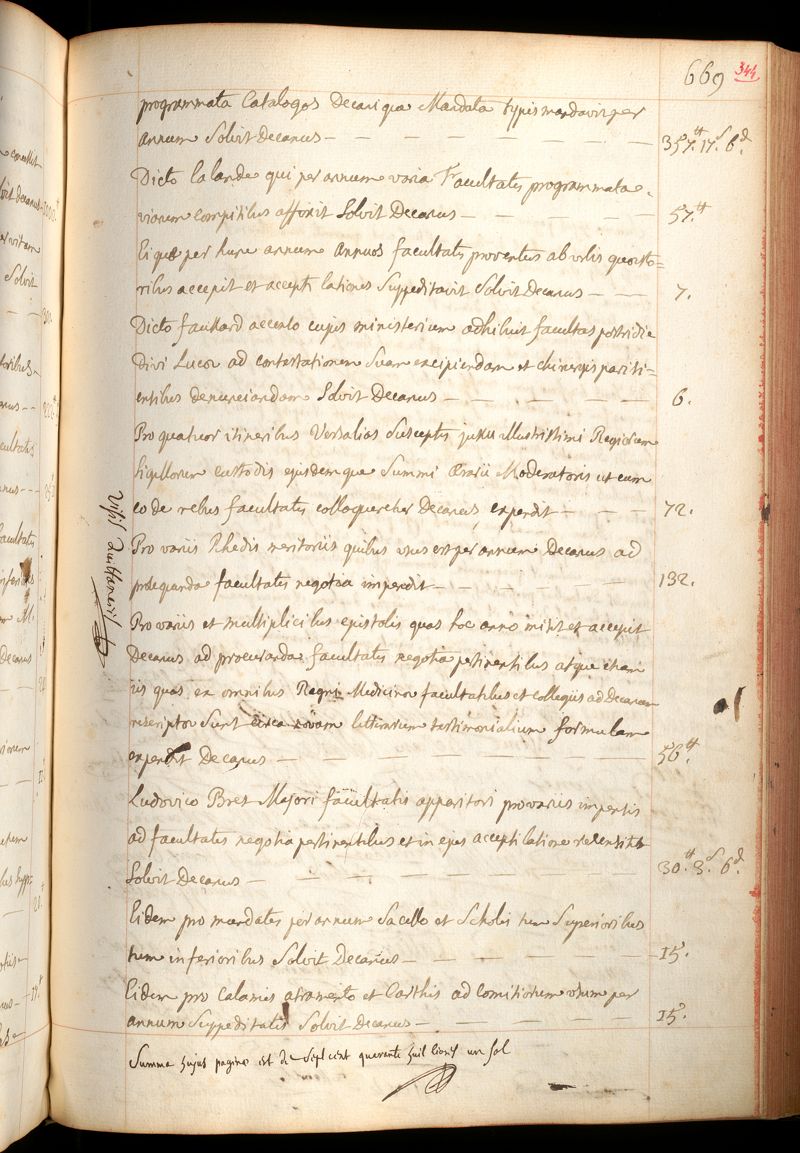 669 344
programmata Catalogos Decanique Mandata typis mandavit per
annum Solvit Decanus — 357.tt 17.s 6.d
Dicto lalande qui per annum varia Facultatis programmata
viarum compitibus affixit Solvit Decanus — 57.tt
Ei qui per hunc annum annuos facultatis proventus ab urbis quæsto=
ribus accepit et accepti lationes Suppeditavit Solvit Decanus — 7.
Dicto faukard accenso cujus ministerium adhibuit facultas postridie
Divi Lucæ ad contestationem Suam excipiendam et chirurgis pariti=
entibus denunciandam Solvit Decanus — 6.
Pro quatuor itineribus Versalias Susceptis jussu illustrissimi Regiorum
Sigillorum custodis ejusdemque Summi Ærarii Moderatoris ut cum
eo de rebus facultatis colloqueretur Decanus expendit — 72.
Pro variis Rhedis meritoriis quibus usus est per annum Decanus ad
prolequenda facultatis negotia impendit — 132.
Pro variis et multiplicibus epistolis quas hoc anno misit et accepit
Decanus ad procuranda facultatis negotia pertinentibus atque etiam
iis quas ex omnibus Regni Medicinæ facultatibus et collegiis ad Decanum
rescriptæ Sunt circa novam litterarum testimonialium formulam
expendit Decanus — 56.tt
Ludovico Bret Majori facultatis apparitori pro variis impensis
ad facultatis negotia pertinentibus et in ejus acceptilatione recensitis
Solvit Decanus — 30.tt 3.s 6.d
Eidem pro mundatis per annum Sacello et Scholis tum Superioribus
tum inferioribus Solvit Decanus — 15.
Eidem pro Calamis atramento et Carthis ad Comitiorum usum per
annum Suppeditatis Solvit Decanus — 15.
Summa hujus paginæ est de Sept cent quarante huit livres un sol